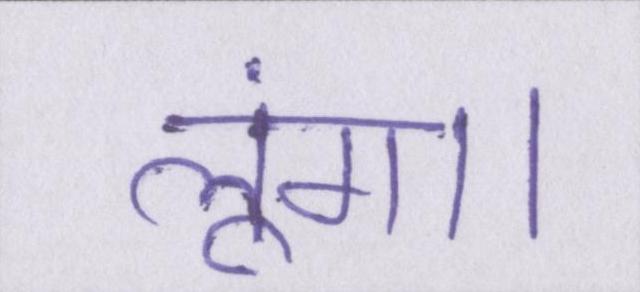 लूंगा।